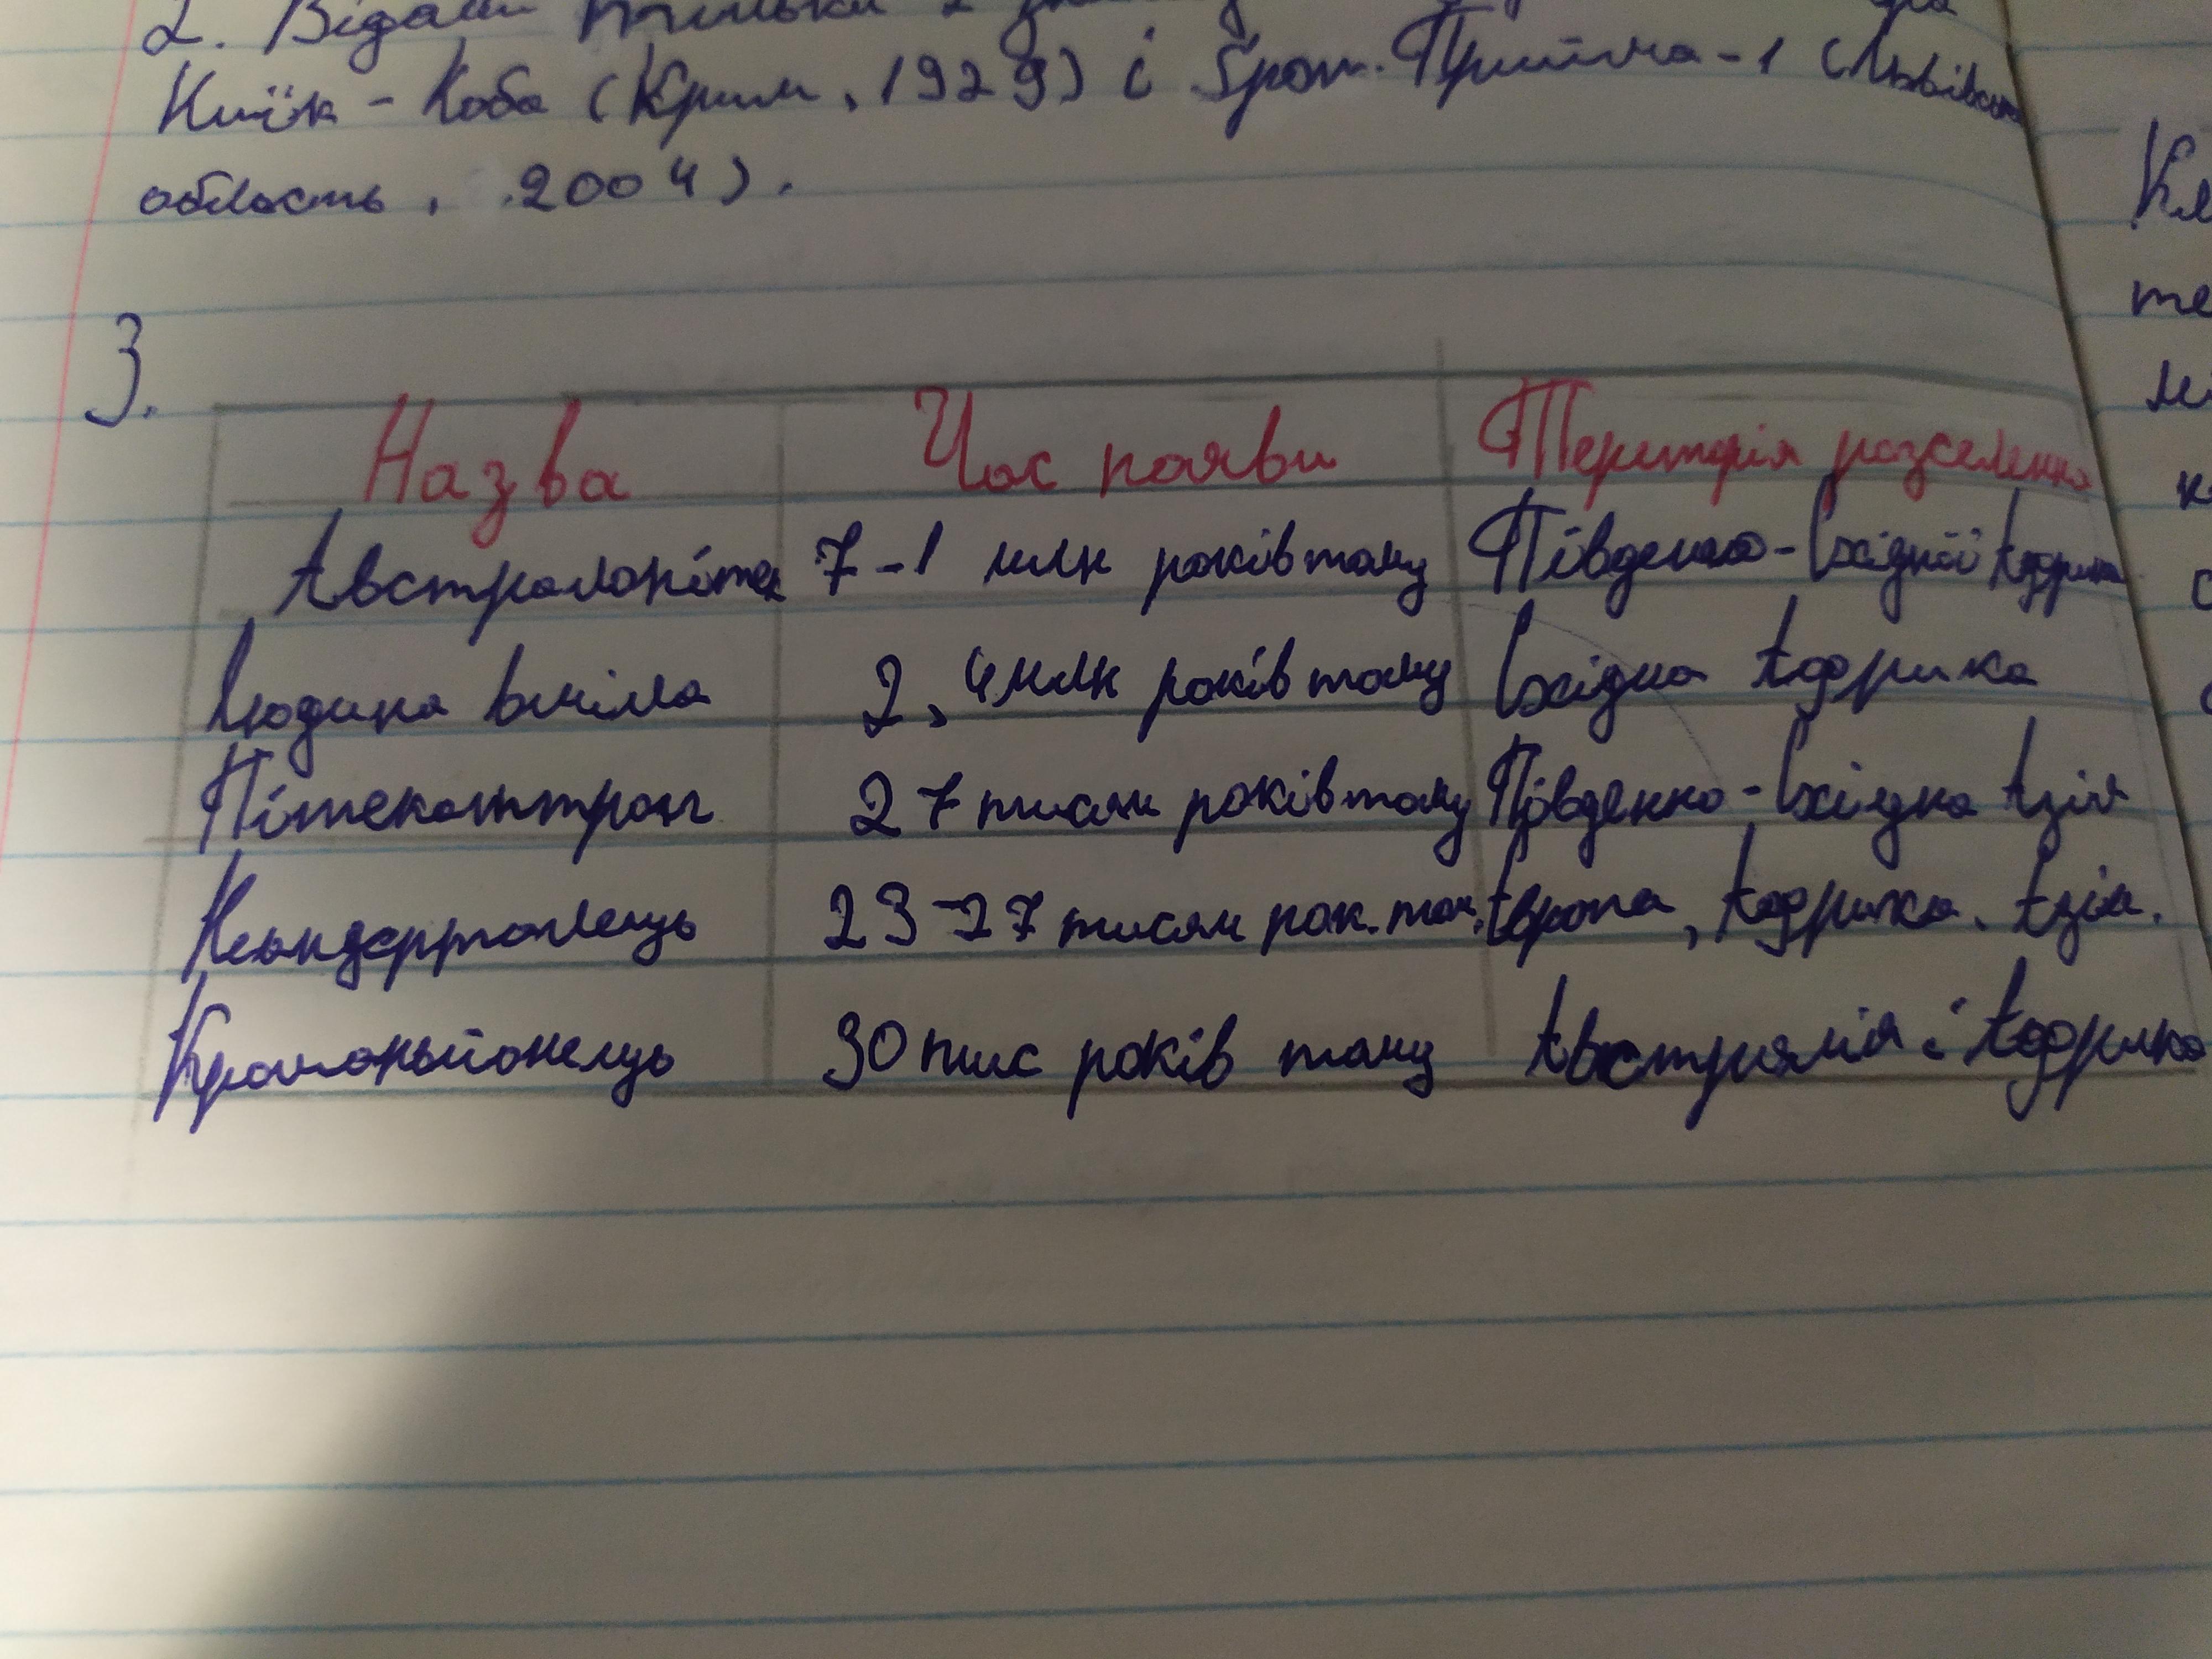 2. Відомі тільки 2
Киїк-Коба (Крим, 1929) і грот. Прийма-1 (Львівська
область, 2004).
3.
Назва Час появи Територія розселення
Австралопітек 7-1 млн років тому Південно-Східної Африка
Людина вміла 2,4 млн років тому Східна Африка
Пітекантроп 27 тисяч років тому Південно-Східна Азія
Неандерталець 23-27 тисяч рок. том. Європа, Африка. Азія.
Кроманьйонець 30 тис років тому Австрялія і Африка
Кл
те